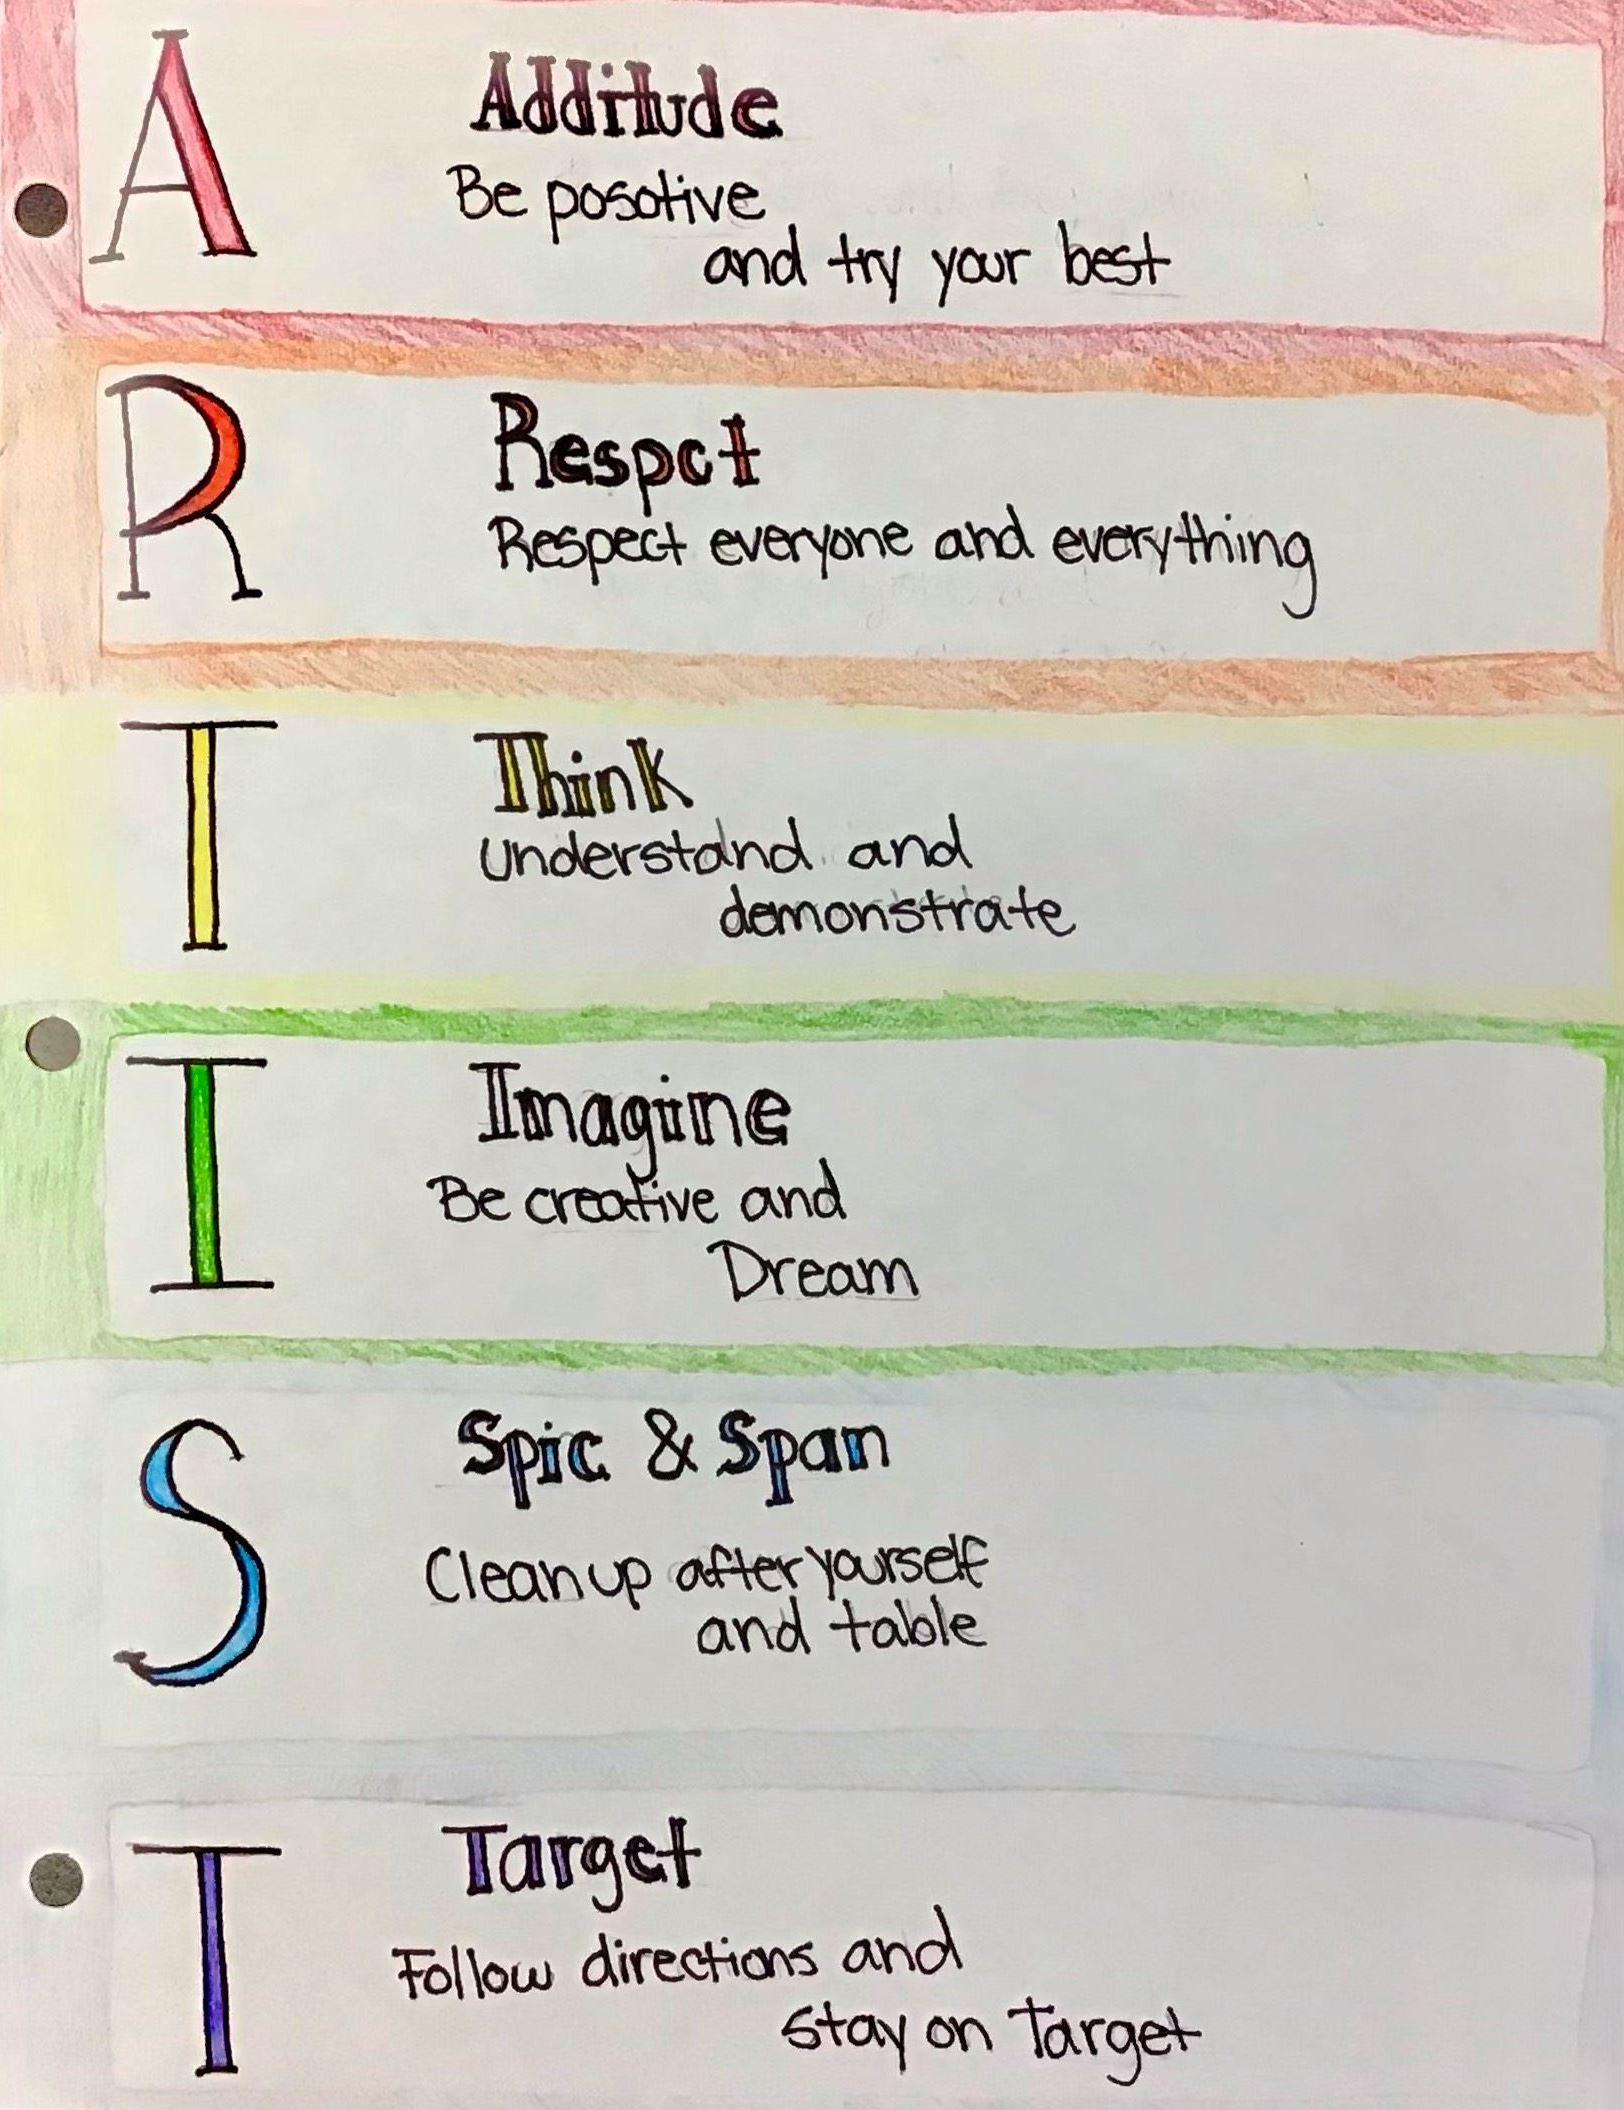 A
Additude
Be posotive
and try your best
R
Respct
Respect everyone and everything
T
Think
Understand and
demonstrate
I
Imagine
Be creative and
Dream
S
Spic & Span
Clean up after yourself
and table
T
Target
Follow directions and
stay on Target